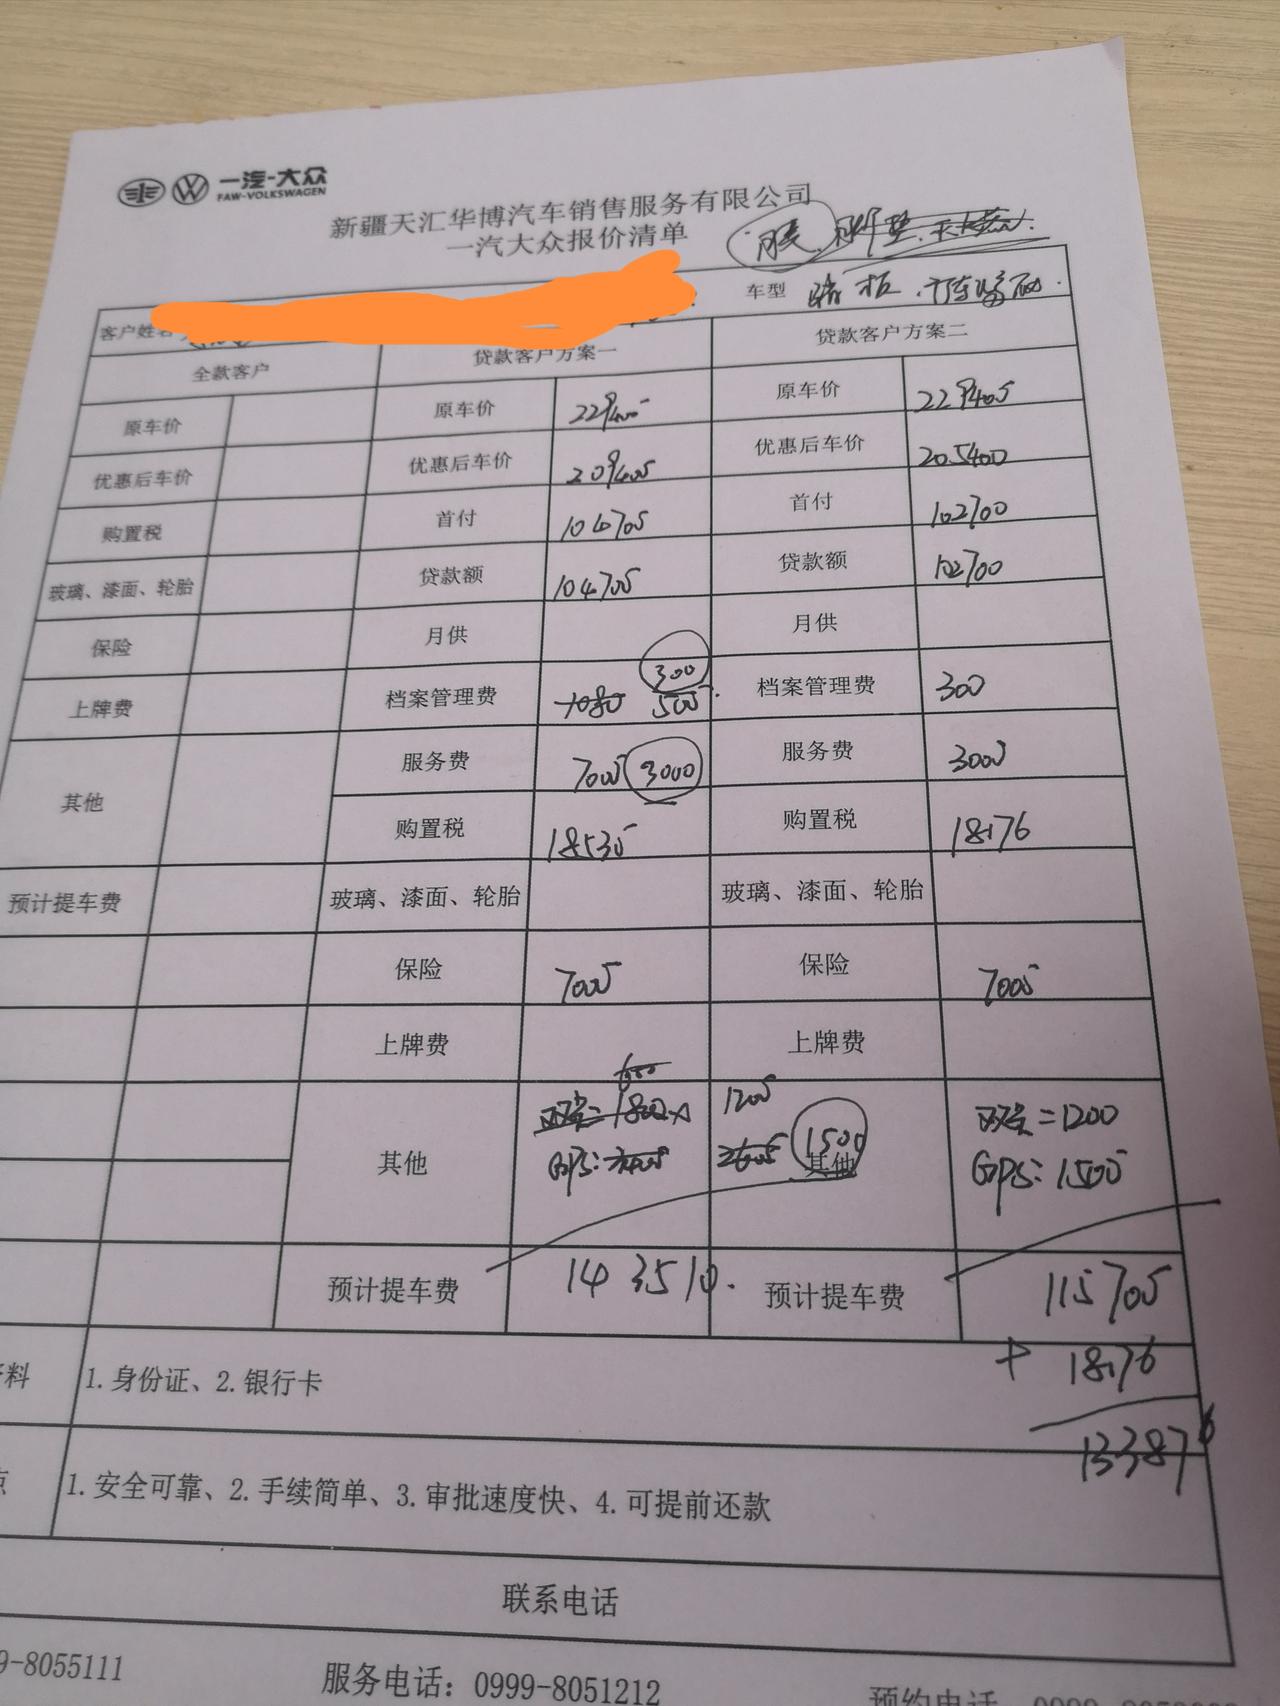 一汽-大众
FAW-VOLKSWAGEN
新疆天汇华博汽车销售服务有限公司
一汽大众报价清单
客户姓名 车型
全款客户 贷款客户方案一 贷款客户方案二
原车价 原车价 229400 原车价 229400
优惠后车价 优惠后车价 209400 优惠后车价 205400
购置税 首付 104700 首付 102700
玻璃、漆面、轮胎 贷款额 104700 贷款额 102700
保险 月供 月供
上牌费 档案管理费 1080 500 300 档案管理费 300
其他 服务费 7000 3000 服务费 3000
购置税 18530 购置税 18176
预计提车费 玻璃、漆面、轮胎 玻璃、漆面、轮胎
保险 7000 保险 7000
上牌费 上牌费
其他 1200 1500 其他 =1200
GPS: GPS: 1500
预计提车费 143510. 预计提车费 115700
+ 18176
133876
料 1.身份证、2.银行卡
点 1.安全可靠、2.手续简单、3.审批速度快、4.可提前还款
联系电话
9-8055111 服务电话：0999-8051212 预约电话